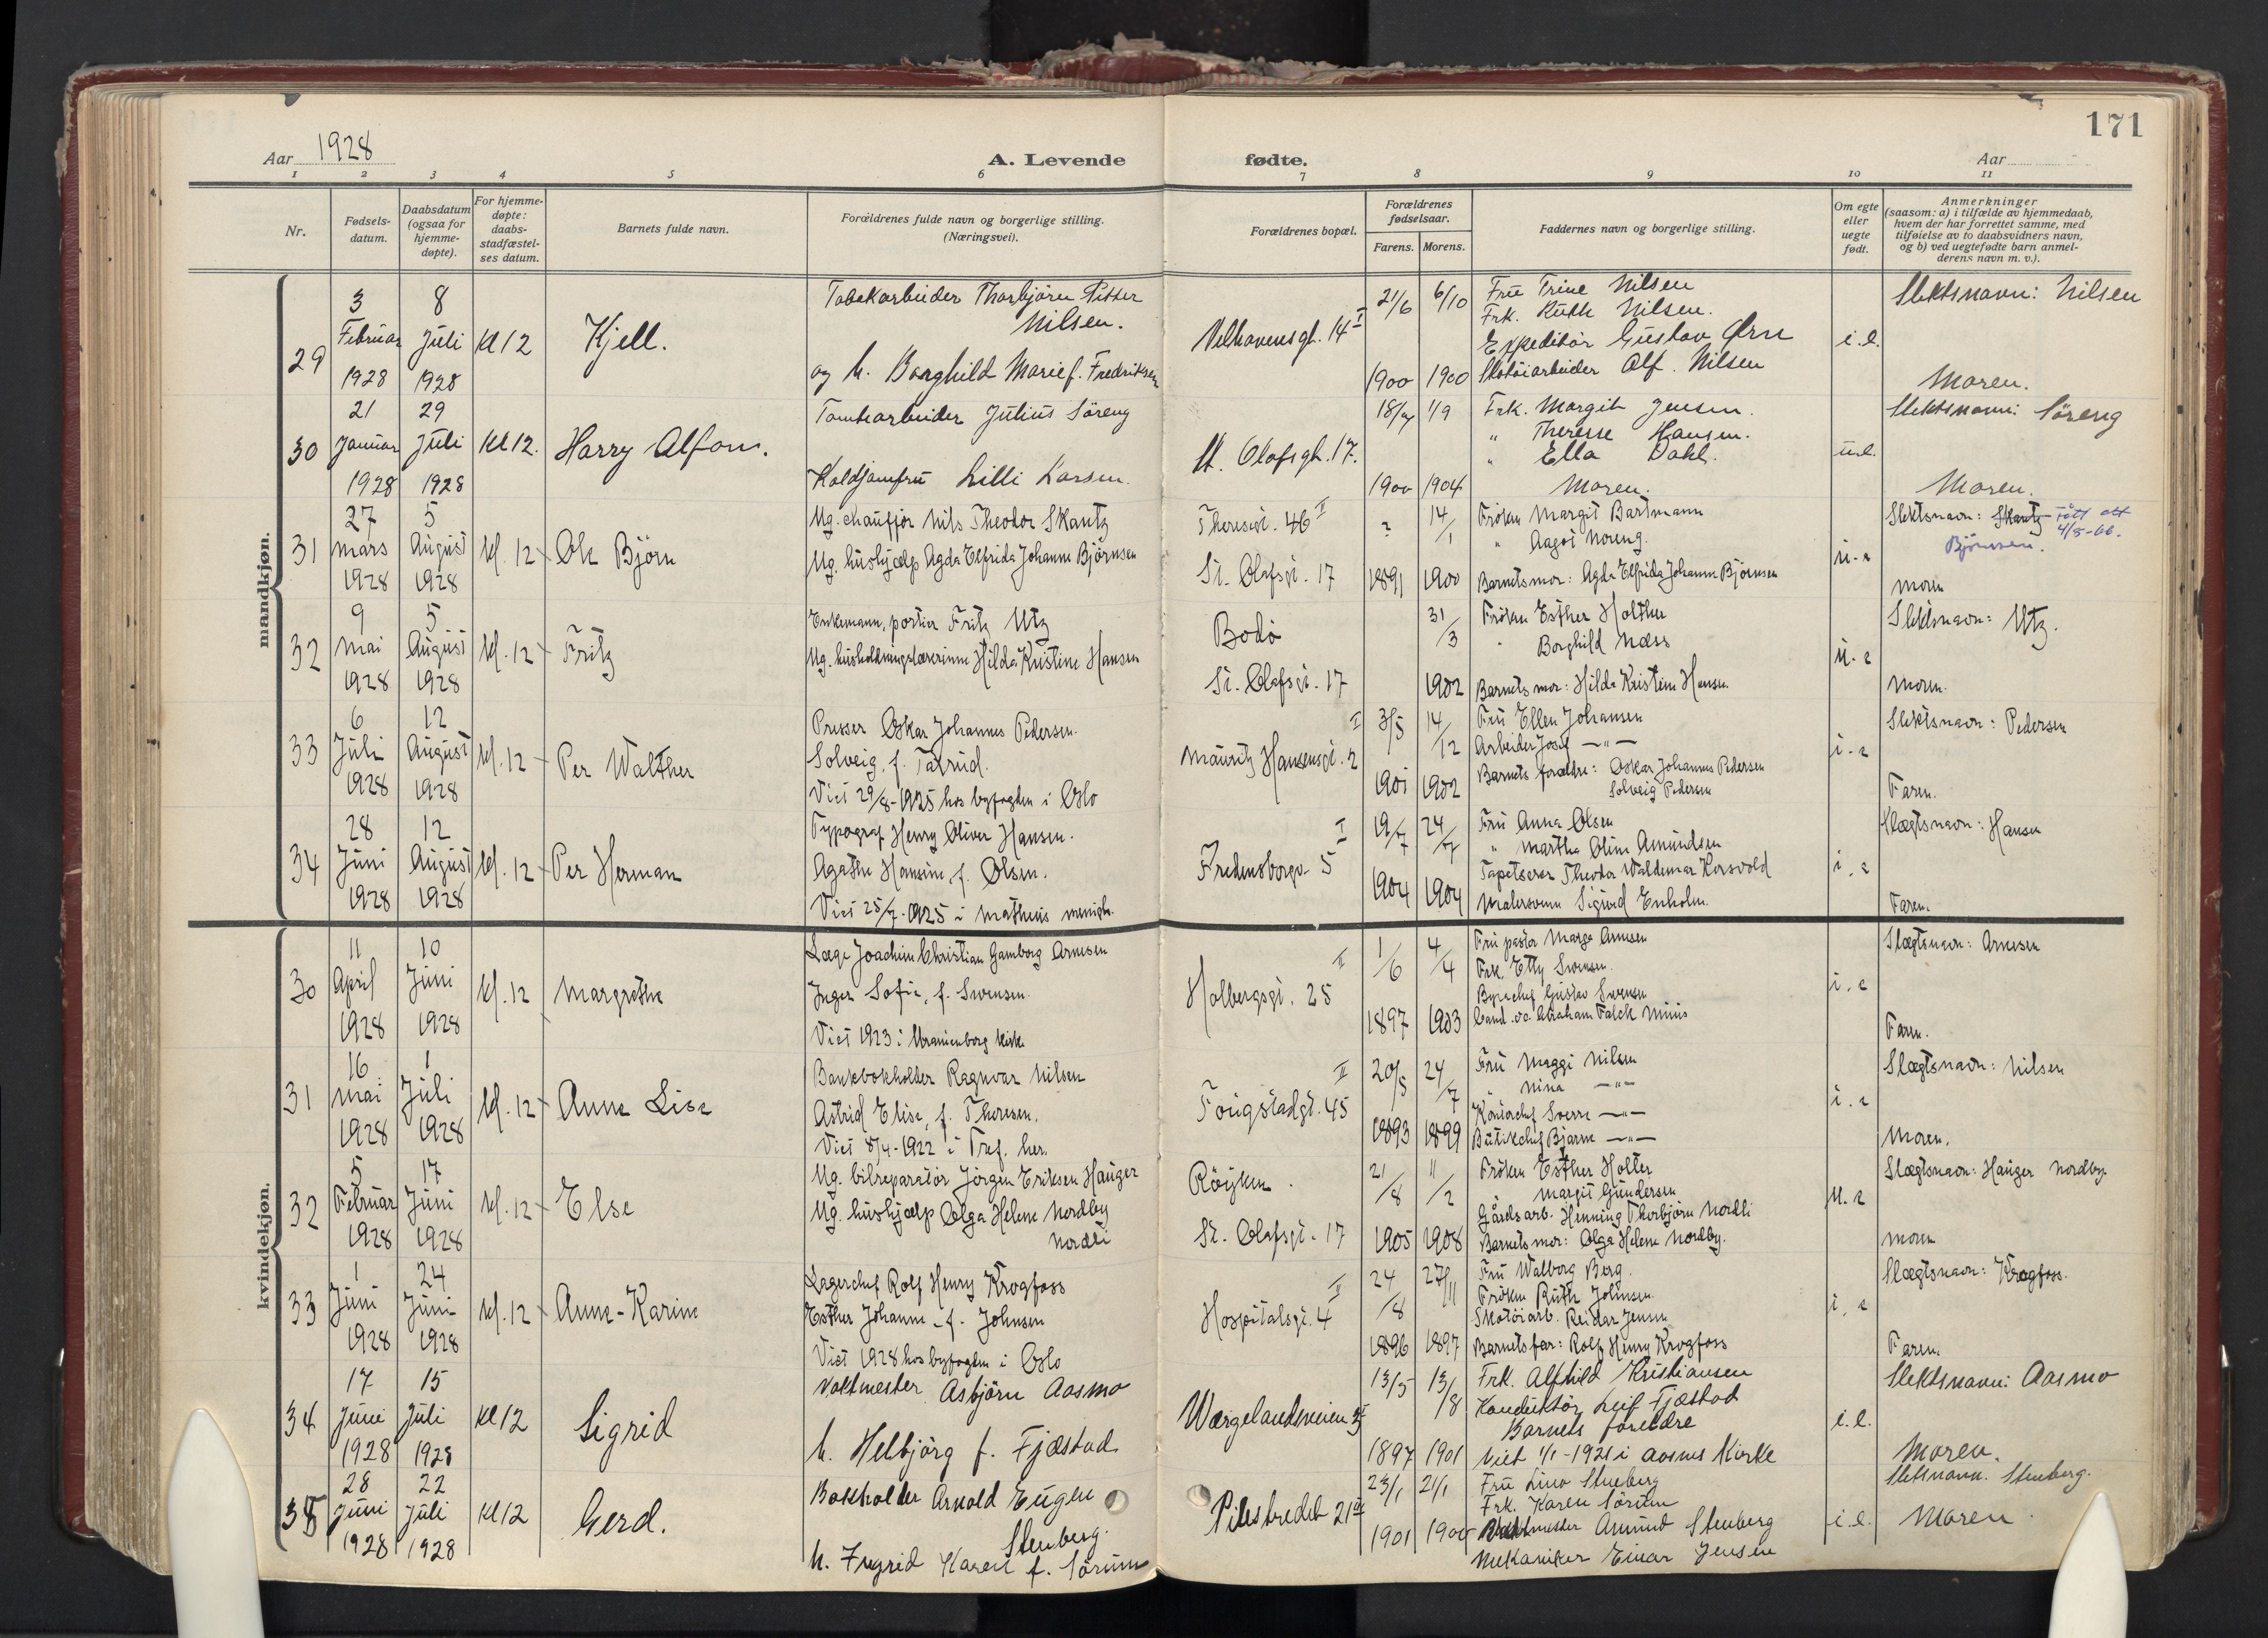 171
Aar 1928
A. Levende fødte.
Aar
1 2 3 4 5 6 7 8 9 10 11
Nr.
Fødsels-datum.
Daabsdatum (ogsaa for hjemme-døpte).
For hjemme-døpte: daabs-stadfæstel-ses datum.
Barnets fulde navn.
Forældrenes fulde navn og borgerlige stilling. (Næringsvei).
Forældrenes bopæl.
Forældrenes fødselsaar.
Farens. Morens.
Faddernes navn og borgerlige stilling.
Om egte eller uegte født.
Anmerkninger (saasom: a) i tilfælde av hjemmedaab, hvem der har forrettet samme, med tilføielse av to daabsvidners navn, og b) ved uegtefødte barn anmel-derens navn m. v.).
mandkjøn.
29
3 Februar 1928
8 Juli 1928
Kl 12
Kjell.
Tobakarbeider Thorbjörn Petter Nilsen.
og h. Borghild Marie f. Fredriksen
Welhavensgt. 14 I
21/6 1900
6/10 1900
Fru Trine Nilsen
Frk. Ruth Nilsen.
Expeditör Gustav Ørn
Skotöiarbeider Alf. Nilsen
i.e.
Slektsnavn: Nilsen
Moren.
30
21 Januar 1928
29 Juli 1928
Kl 12.
Harry Alfons.
Tomtearbeider Julius Söreng
Koldjomfru Lilli Larsen.
St. Olafsgt. 17.
1900
1/9 1904
Frk. Margit Jensen.
" Therese Hansen.
" Ella Dahl.
Moren.
u.e.
Slektsnavn: Söreng
Moren.
31
27 mars 1928
5 August 1928
kl. 12
Ole Björn
Ug. chauffør Nils Theodor Skantz
Ug. hushjælp Agda Elfrida Johanne Björnsen
Theresesgt. 46 II
St. Olafsgt. 17
? 1891
14/1 1900
Fröken Margit Bartmann
" Aagot Noreng.
Barnets mor: Agda Elfrida Johanne Bjørnsen
u-e
Slektsnavn: Skantz
4/8-66.
Björnsen.
moren
32
9 mai 1928
5 August 1928
kl. 12
Fritz
Enkemann, portier Fritz Utz
Ug. husholdningslærerinne Hilda Kristine Hansen
Bodø
St. Olafsgt. 17
31/3 1902
Fröken Esther Holther
" Borghild Næss
Barnets mor: Hilda Kristine Hansen
u-e
Slektsnavn: Utz.
moren.
33
6 Juli 1928
12 August 1928
kl. 12
Per Walther
Presser Oskar Johannes Pedersen.
Solveig, f. Tafrud.
Viet 29/8-1925 hos byfogden i Oslo
Mauritz Hansensgt. 2 II
3/5 1901
14/12 1902
Fru Ellen Johansen
Arbeider Josef —"—
Barnets forældre: Oskar Johannes Pedersen
Solveig Pedersen
i-e
Slektsnavn: Pedersen
Faren.
34
28 Juni 1928
12 August 1928
kl. 12
Per Herman
Typograf Henry Oliver Hansen.
Agathe Hansine, f. Olsen.
Viet 25/7-1925 i Matheus menigh.
Fredensborgv. 5 I
19/7 1904
24/7 1904
Fru Anna Olsen
" Martha Oline Amundsen
Tapetserer Theodor Waldemar Korsvold
Malersvenn Sigurd Enholm.
i.e
Slægtsnavn: Hansen
Faren.
kvindekjøn.
30
11 April 1928
10 Juni 1928
kl. 12
Margrethe
Læge Joachim Christian Gamborg Arnesen
Inger Sofie, f. Swensen.
Viet 1923 i Uranienborg kirke
Holbergsgt. 25 II
1/6 1897
4/4 1903
Fru pastor Marga Arnesen
Frk. Etty Swensen.
Byrachef Gustav Swensen
Cand. oc. Abraham Falck
i.e
Slægtsnavn: Arnesen
Faren.
31
16 mai 1928
1 Juli 1928
kl. 12
Anne Lise
Bankbokholder Ragnvar Nilsen
Astrid Elise, f. Thoresen.
Viet 8/4-1922 i Tref. her.
Fougstadgt. 45 II
20/5 1893
24/7 1899
Fru Maggi Nilsen
" Nina —"—
Kontorchef Sverre —"—
Butikchef Bjarne —"—
i.e
Slægtsnavn: Nilsen
Moren.
32
5 Februar 1928
17 Juni 1928
kl. 12
Else
Ug. bilreparatör Jörgen Eriksen Hauger
Ug. hushjælp Olga Helene Nordby
Nordli
Röyken.
St. Olafsgt. 17
21/8 1905
11/2 1908
Fröken Esther Holter
" Margit Gundersen
Gårdsarb. Henning Thorbjörn Nordli
Barnets mor: Olga Helene Nordby.
u.e
Slægtsnavn: Hauger Nordby
moren
33
1 Juni 1928
24 Juni 1928
kl. 12
Anne-Karine
Lagerchef Rolf Henry Krogfoss
Esther Johanne f. Johnsen
Viet 1928 hos byfogden i Oslo
Hospitalsgt. 4 II
24/8 1896
27/11 1897
Fru Walborg Berg.
Fröken Ruth Johnsen.
Skotöiarb. Reidar Jensen
Barnets far: Rolf Henry Krogfoss
i.e
Slægtsnavn: Krogfoss.
Faren.
34
17 Juni 1928
15 Juli 1928
Kl 12
Sigrid
Vaktmester Asbjörn Aasmo
h. Helbjörg f. Fjæstad
Wergelandsveien
13/5 1897
13/8 1901
Frk. Alfhild Kristiansen
Konduktör Leif Fjæstad
Barnets foreldre
Viet 1/1-1921 i Aasnes Kirke
i.e.
Slektsnavn: Aasmo
Moren.
35
28 Juni 1928
22 Juli 1928
Kl 12
Gerd.
Bokholder Arnold Eugen Stenberg.
h. Ingrid Karen f. Sörum
Pilestredet 21 II
23/1 1901
21/1 1900
Fru Lina Stenberg
Frk. Karen Sörum
Vaktmester Amund Stenberg
Mekaniker Einar Jensen
i.e.
Slektsnavn. Stenberg.
Moren.